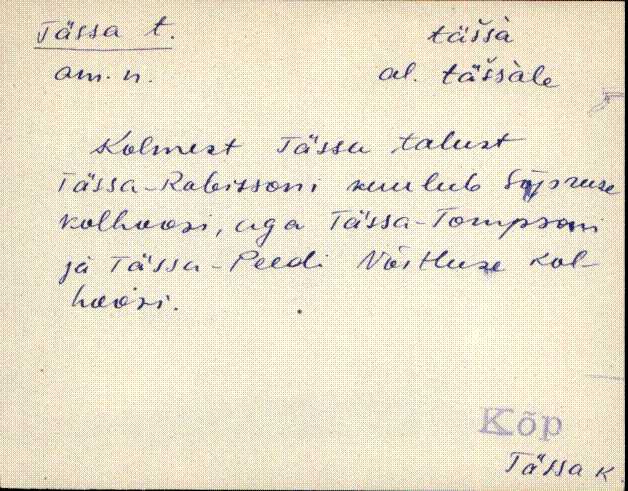 Tässa t.
täšsà
am. n.
al. täšsàle
Kolmest Tässa talust
Tässa-Robissoni kuulub Sõpruse
kolhoosi, aga Tässa-Tompsoni
ja Tässa-Peedi Võitluse kol-
hoosi.
Kõp
Tässa k.